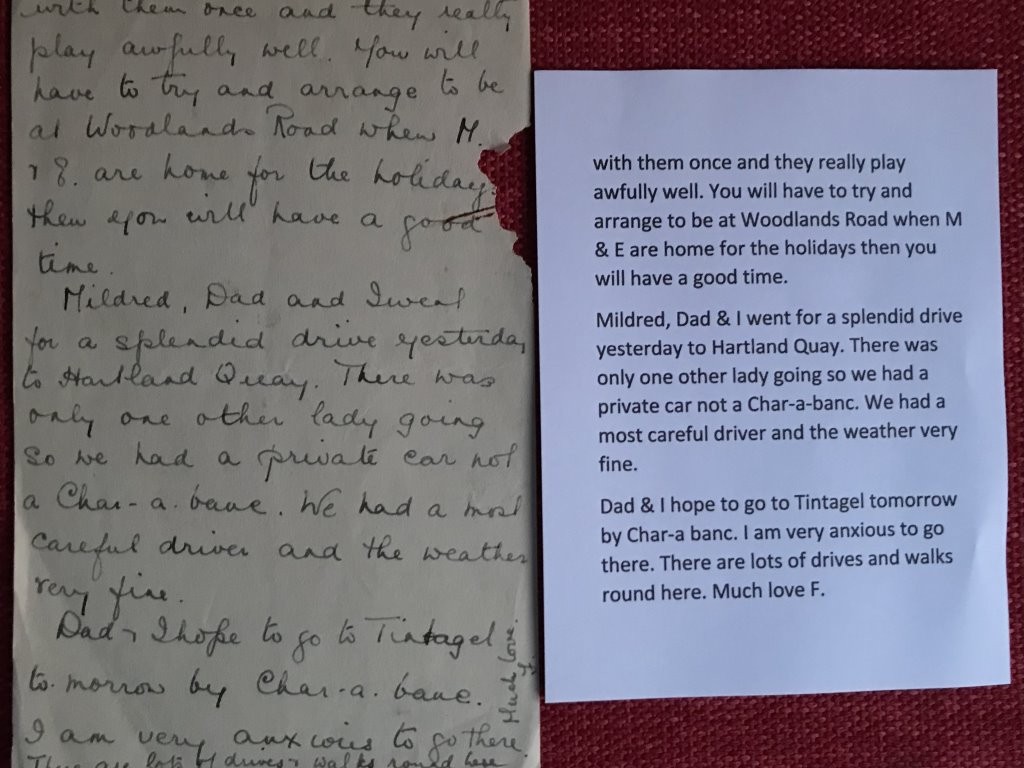 with them once and they really
play awfully well. You will
have to try and arrange to be
at Woodlands Road when M.
& E. are home for the holidays
then you will have a good
time.
Mildred, Dad and I went
for a splendid drive yesterday
to Hartland Quay. There was
only one other lady going
so we had a private car not
a Char-a-banc. We had a most
careful driver and the weather
very fine.
Dad & I hope to go to Tintagel
to-morrow by Char-a-banc.
I am very anxious to go there.
There are lots of drives & walks round here
Much love
F.
with them once and they really play
awfully well. You will have to try and
arrange to be at Woodlands Road when M
& E are home for the holidays then you
will have a good time.
Mildred, Dad & I went for a splendid drive
yesterday to Hartland Quay. There was
only one other lady going so we had a
private car not a Char-a-banc. We had a
most careful driver and the weather very
fine.
Dad & I hope to go to Tintagel tomorrow
by Char-a banc. I am very anxious to go
there. There are lots of drives and walks
round here. Much love F.